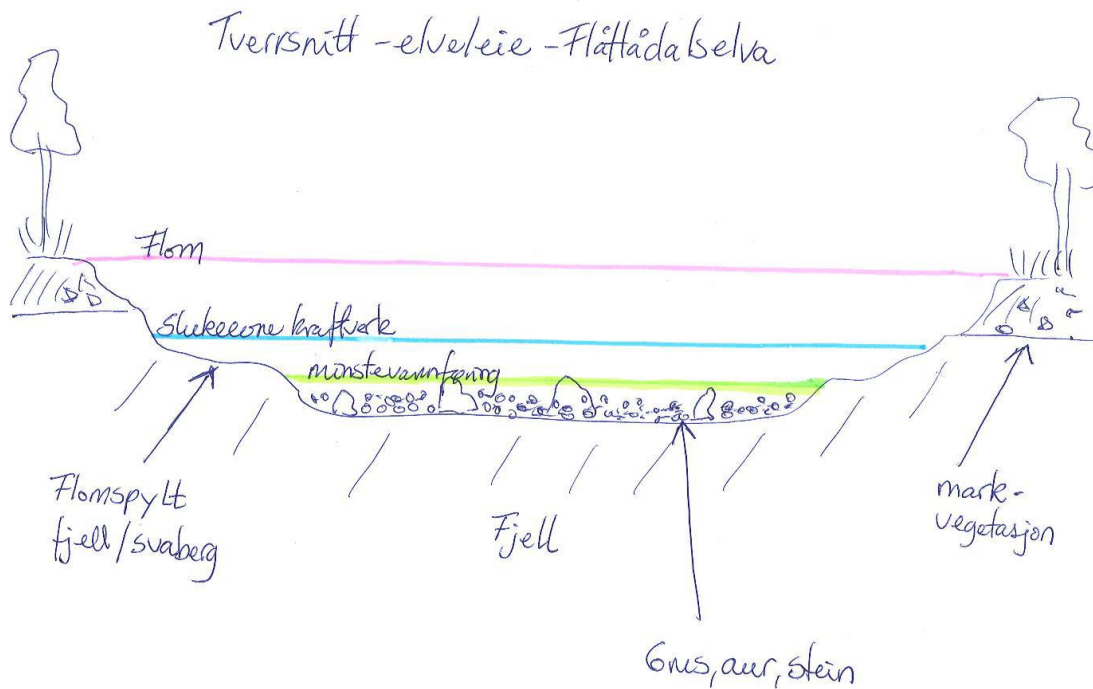 Tverrsnitt - elveleie - Flåttådalselva
Flom
Slukeevne kraftverk
minstevannføring
Flomspylt
fjell/svaberg
Fjell
mark-
vegetasjon
Grus, aur, stein